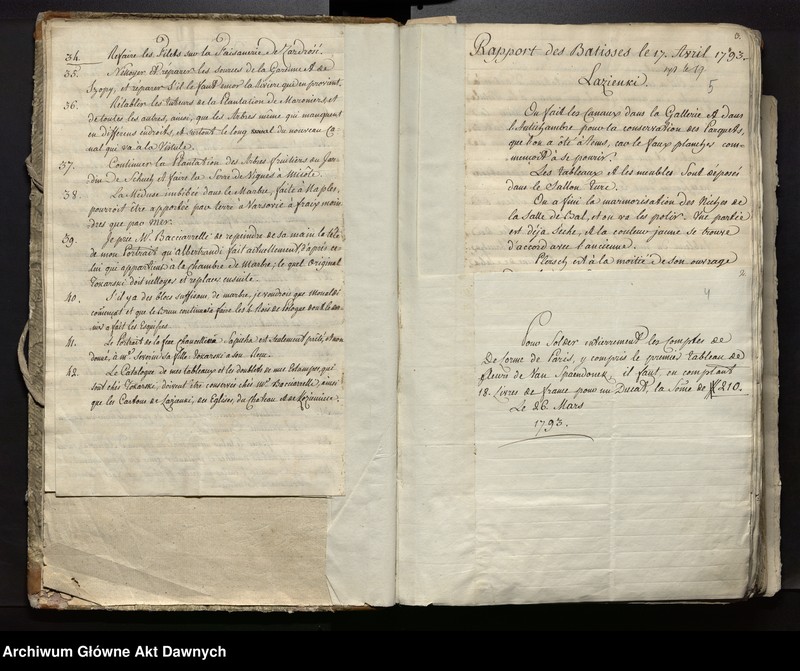 34. Refaire les Filets sur la Faisanerie de
35. Nettoyer et réparer les sources de la Garenne et de
et reparer s'il le faut encor la Riviere qui en provient.
36. Rétablir les Tuteurs de la Plantation de Maroniers, et
de toutes les autres, ainsi, que les Arbres même qui manquent
en differens endroits, et surtout le long du nouveau Ca-
nal qui va à la Vistule.
37. Continuer la Plantation des Arbres fruitiers au Jar-
din de et faire la Serre de Vignes à
38. La Meduse imbibée dans le Marbre, faite à Naples,
pourroit être apportée par terre à Varsovie à fraix moin-
dres que par mer.
39. Je prie Mr. Bacciarelli de repeindre de sa main la Tête
de mon Portrait qu'Albertrandi fait actuellement, d'après ce-
lui qui appartient à la chambre de Marbre; le quel Original
doit nettoyer et replacer ensuite.
40. S'il y a des blocs suffisans de marbre, je voudrois que Monaldi
commence et que le Brun continue à faire les 4 Rois de Pologne dont le der-
nier a fait les Esquisses.
41. Le Portrait de la feue Chancelliere Sapieha est seulement prêté, et non
donné, à Mde. Severin sa fille.
42. Le Catalogue de mes tableaux et les doublets de mes Estampes, qui
sont chès doivent être conservés chès Mr. Bacciarelli, ainsi
que les Cartons de Lazienki, des Eglises, du Chateau et de
Rapport des Batisses le 17. Avril 1793.
5
Lazienki.
On fait les Canaux dans la Gallerie et dans
l'Antichambre pour la conservation des Parquets,
que l'on a ôté à tems, car le faux planches com-
mençoit à se pourrir.
Les Tableaux et les meubles sont déposés
dans le Sallon Turc.
On a fini la marmorisation des Niches de
la Salle de Bal, et on va les polir. Une partie
est déja sèche, et la couleur jaune se trouve
d'accord avec l'ancienne.
Plersch est à la moitié de son ouvrage
2
4
Pour Solder entierrement les Comptes de
De Corme de Paris, y compris le premier Tableau de
fleurs de Van Spaendonck, il faut, en comptant
18. Livres de france pour un Ducat, la Some de # 210.
Le 26 Mars
1793.
Archiwum Główne Akt Dawnych